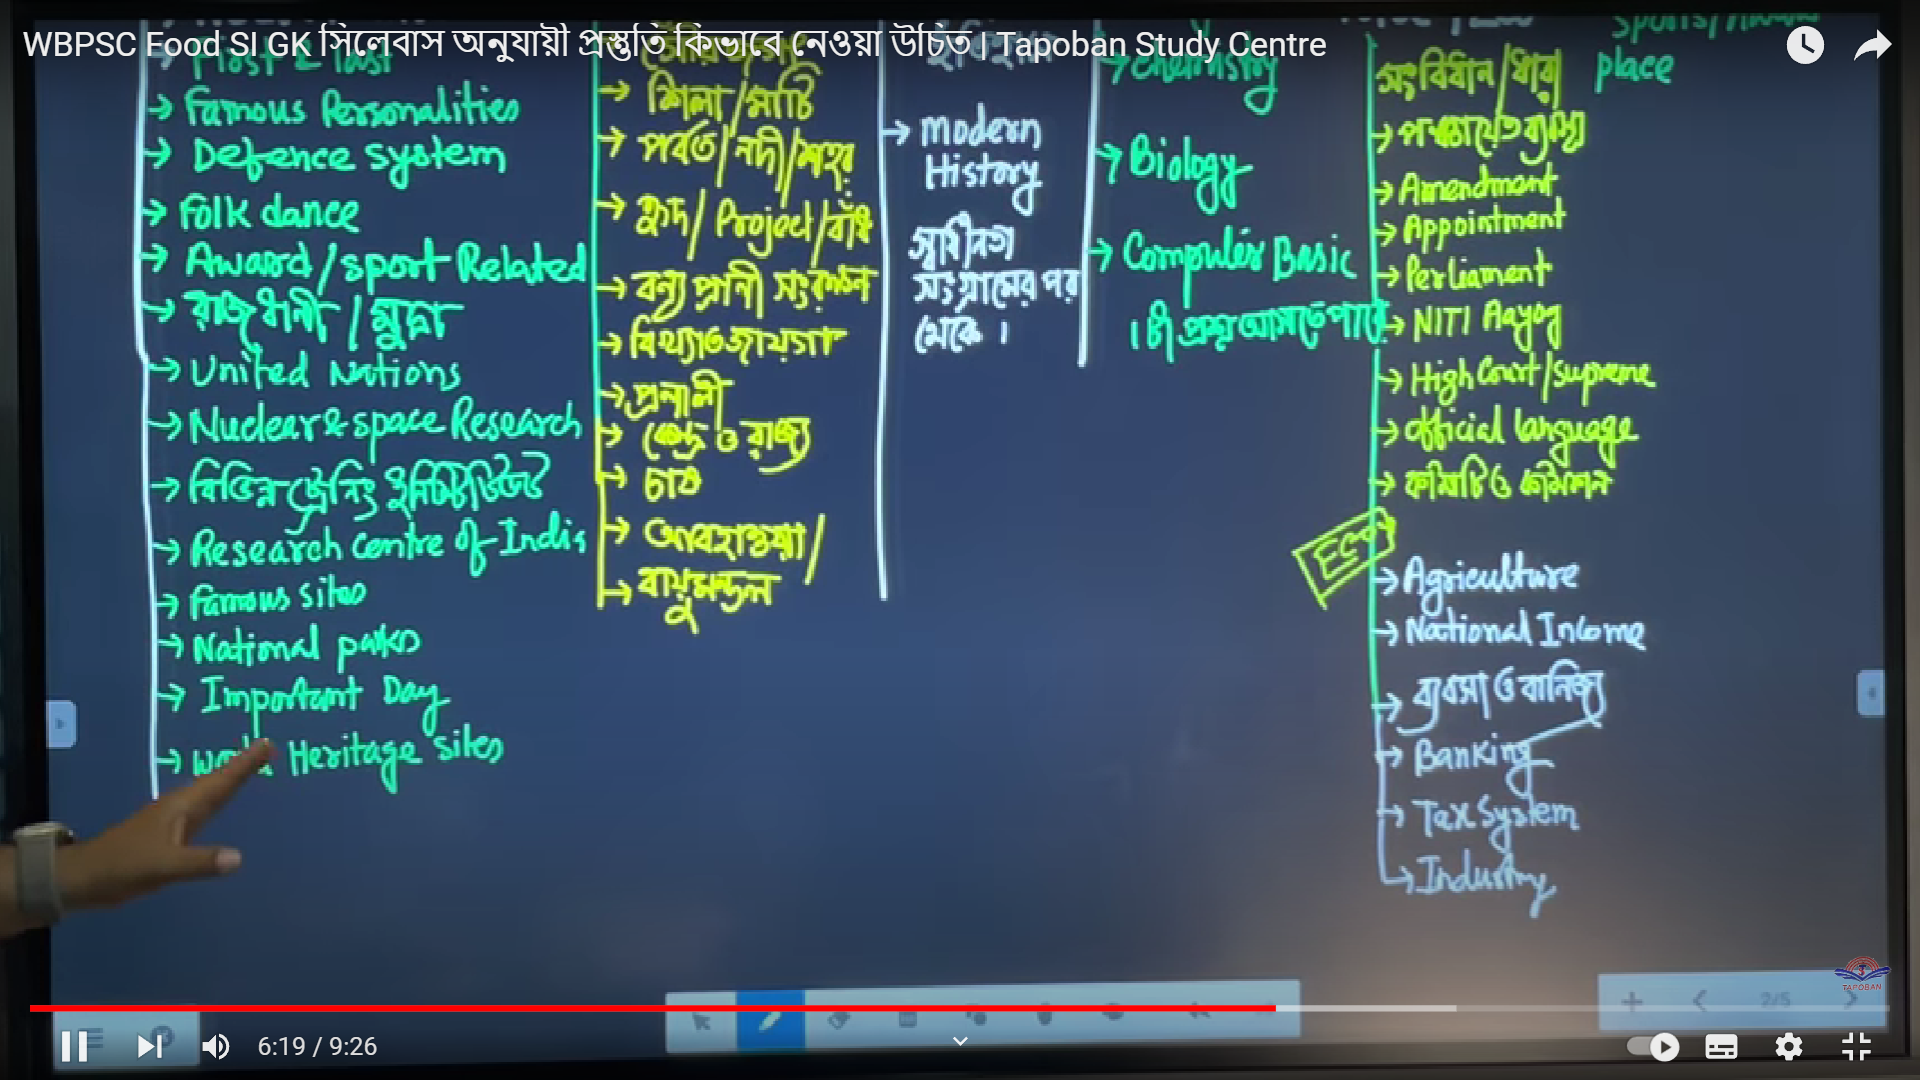 WBPSC Food SI GK সিলেবাস অনুযায়ী প্রস্তুতি কিভাবে নেওয়া উচিত | Tapoban Study Centre
First & last
→ Famous Personalities
→ Defence system
→ Folk dance
→ Award/sport Related
→ রাজধানী / মুদ্রা
→ United Nations
→ Nuclear & space Research
→ বিভিন্ন ট্রেনিং
→ Research centre of India
→ Famous sites
→ National parks
→ Important Day
→ World Heritage sites
→ শিলা/মাটি
→ পর্বত/নদী/শহর
→ হ্রদ/Project/বাঁধ
→ বন্য প্রানী সংরক্ষন
→ বিখ্যাত জায়গা
→ প্রনালী
→ কেন্দ্র ও রাজ্য
→ চাষ
→ আবহাওয়া/
→ বায়ুমন্ডল
ইতিহাস
→ Modern
History
স্বাধীনতা
সংগ্রামের পর
থেকে।
→ Chemistry
→ Biology
→ Computer Basic
1টা প্রশ্ন আসতে পারে
Sports/Award
place
সংবিধান/ধারা
→ পঞ্চায়েত ব্যবস্থা
→ Amendment
→ Appointment
→ Perliament
→ NITI Aayog
→ High Court/Supreme
→ official language
→ কমিটি ও কমিশন
ECO
→ Agriculture
→ National Income
→ ব্যবসা ও বানিজ্য
→ Banking
→ Tax System
→ Industry
TAPOBAN
2/5
6:19 / 9:26